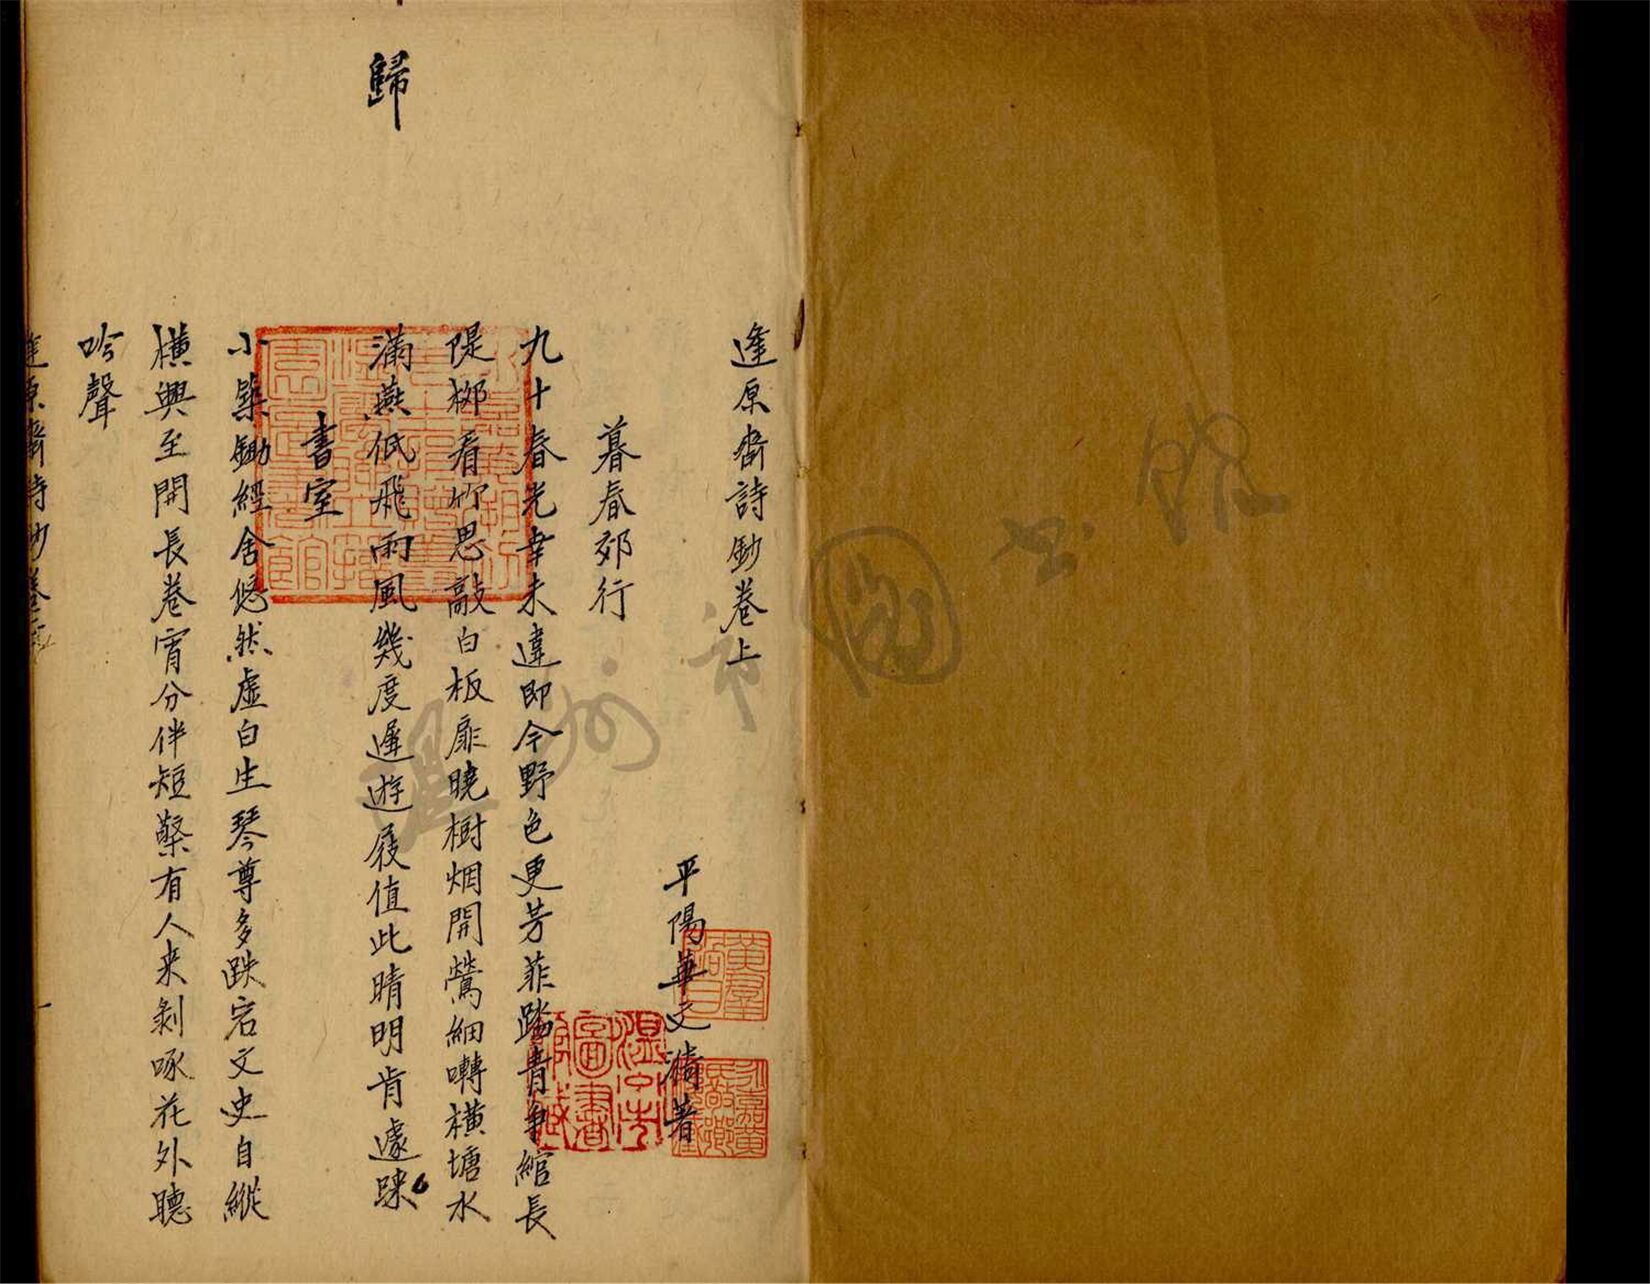 逢原齋詩鈔卷上
平陽華文漪著
暮春郊行
九十春光幸未違即今野色更芳菲踏青争綰長
隄栁看竹思敲白板扉曉樹烟開鶯細囀橫塘水
滿燕低飛雨風幾度遲遊屐值此晴明肯遽
歸
書室
小築鋤經舍悠然虛白生琴尊多跌宕文史自縱
橫興至開長卷宵分伴短檠有人来剝啄花外聽
吟聲
逢原齋詩鈔卷上
一
溫州市圖書館
溫州市圖書館藏